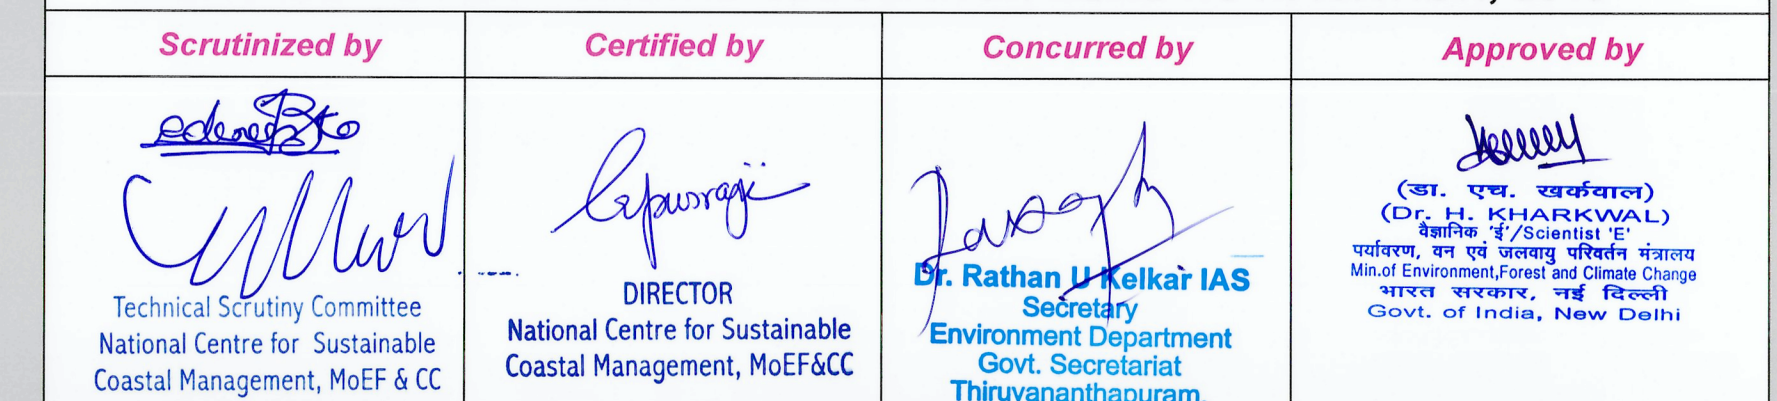 Scrutinized by
Certified by
Concurred by
Approved by
Technical Scrutiny Committee
National Centre for Sustainable
Coastal Management, MoEF & CC
DIRECTOR
National Centre for Sustainable
Coastal Management, MoEF&CC
Dr. Rathan U Kelkar IAS
Secretary
Environment Department
Govt. Secretariat
Thiruvananthapuram.
(डा. एच. खर्कवाल)
(Dr. H. KHARKWAL)
वैज्ञानिक 'ई'/Scientist 'E'
पर्यावरण, वन एवं जलवायु परिवर्तन मंत्रालय
Min.of Environment,Forest and Climate Change
भारत सरकार, नई दिल्ली
Govt. of India, New Delhi